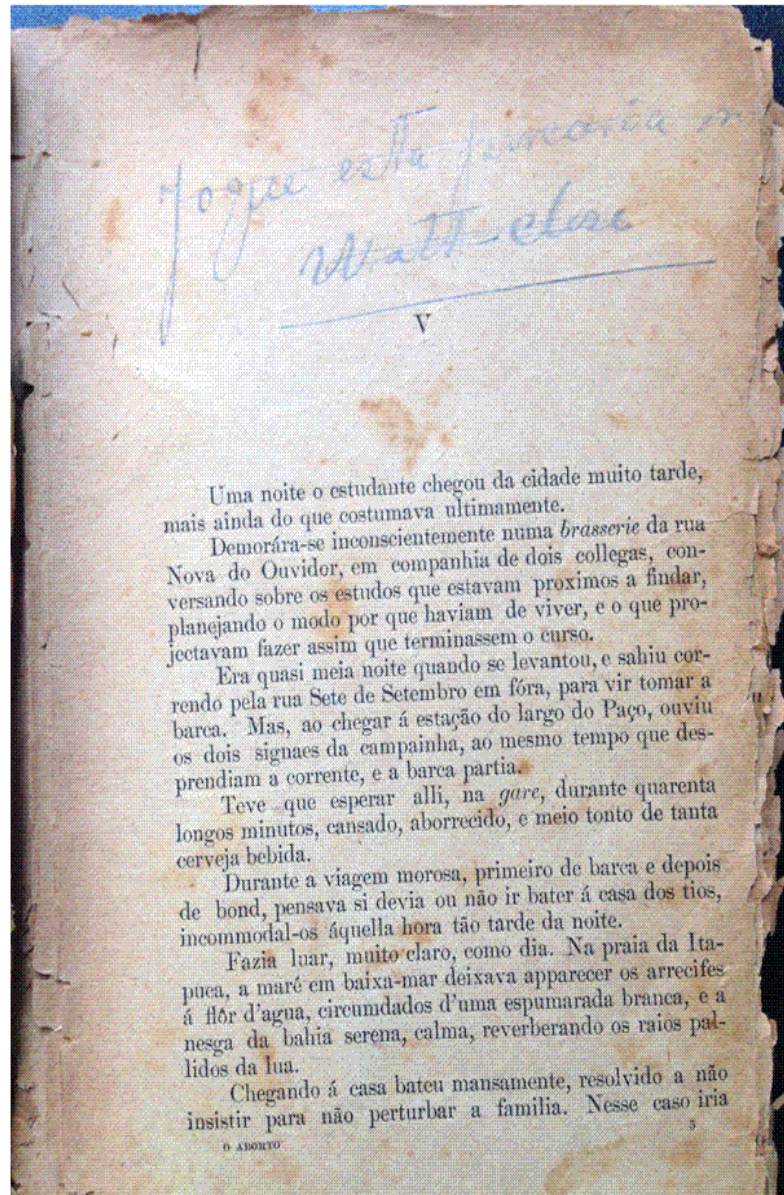 Jogue esta porcaria n
Watt-close
V
Uma noite o estudante chegou da cidade muito tarde,
mais ainda do que costumava ultimamente.
Demorára-se inconscientemente numa brasserie da rua
Nova do Ouvidor, em companhia de dois collegas, con-
versando sobre os estudos que estavam proximos a findar,
planejando o modo por que haviam de viver, e o que pro-
jectavam fazer assim que terminassem o curso.
Era quasi meia noite quando se levantou, e sahiu cor-
rendo pela rua Sete de Setembro em fóra, para vir tomar a
barca. Mas, ao chegar á estação do largo do Paço, ouviu
os dois signaes da campainha, ao mesmo tempo que des-
prendiam a corrente, e a barca partia.
Teve que esperar alli, na gare, durante quarenta
longos minutos, cansado, aborrecido, e meio tonto de tanta
cerveja bebida.
Durante a viagem morosa, primeiro de barca e depois
de bond, pensava si devia ou não ir bater á casa dos tios,
incommodal-os áquella hora tão tarde da noite.
Fazia luar, muito claro, como dia. Na praia da Ita-
puca, a maré em baixa-mar deixava apparecer os arrecifes
á flôr d'agua, circumdados d'uma espumarada branca, e a
nesga da bahia serena, calma, reverberando os raios pal-
lidos da lua.
Chegando á casa bateu mansamente, resolvido a não
insistir para não perturbar a familia. Nesse caso iria
O ABORTO
5